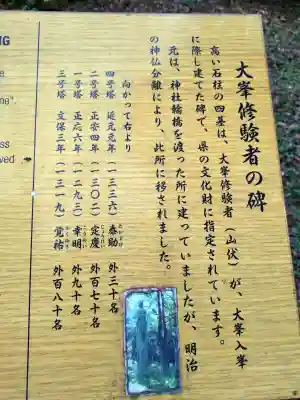 大峯修験者の碑
高い石柱の四基は、大峯修験者（山伏）が、大峯入峯
に際し建てた碑で、県の文化財に指定されています。
元は、神社輪橋を渡った所に建っていましたが、明治
の神仏分離により、此所に移されました。
向かって右より
四号塔 延元元年（一三三六）泰助 外三十名
二号塔 正安四年（一三〇二）定慶 外百七十名
一号塔 正応六年（一二九三）幸明 外九十名
三号塔 文保三年（一三一九）覚祐 外百八十名
NG
e
ne",
ss
ved